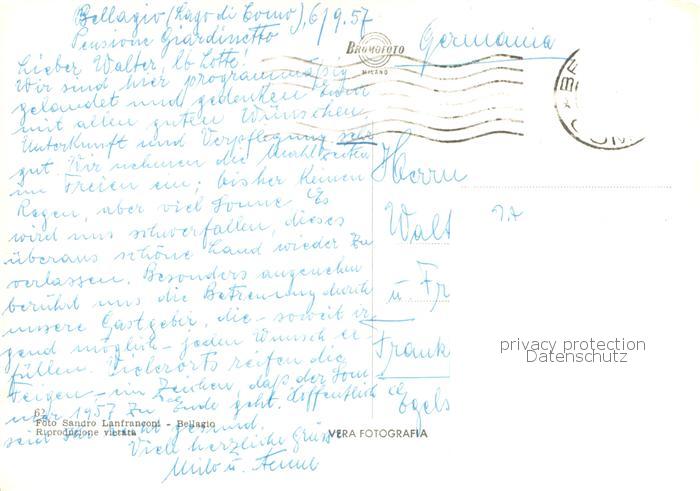 Bellagio (Lago di Como), 6/9.57
Pensione Giardinetto
Lieber Walter, lb Lotte!
Wir sind hier programmäßig
gelandet und gedenken Euer
mit allen guten Wünschen.
Unterkunft und Verpflegung sehr
gut. Wir nehmen die Mahlzeiten
im Freien ein; bisher keinen
Regen, aber viel Sonne. Es
wird uns schwerfallen, dieses
überaus schöne Land wieder zu
verlassen. Besonders angenehm
berührt uns die Betreuung durch
unsere Gastgeber, die - soweit ir-
gend möglich - jeden Wunsch er-
füllen. Vielerorts reifen die
Feigen - ein Zeichen, daß der Som-
mer 1957 zu Ende geht. Hoffentlich
seid Ihr gesund.
Viele herzliche Grüße
BROMOFOTO
MILANO
Germania
Herrn
Walt
u Fr
Frank
Egels
privacy protection
Datenschutz
62
Foto Sandro Lanfranconi - Bellagio
Riproduzione vietata
VERA FOTOGRAFIA